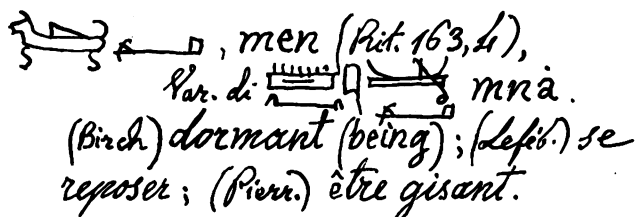 , men (Rit. 163, 4),
Var. di mnȧ.
(Birch) dormant (being); (Leféb.) se
reposer; (Pierr.) être gisant.